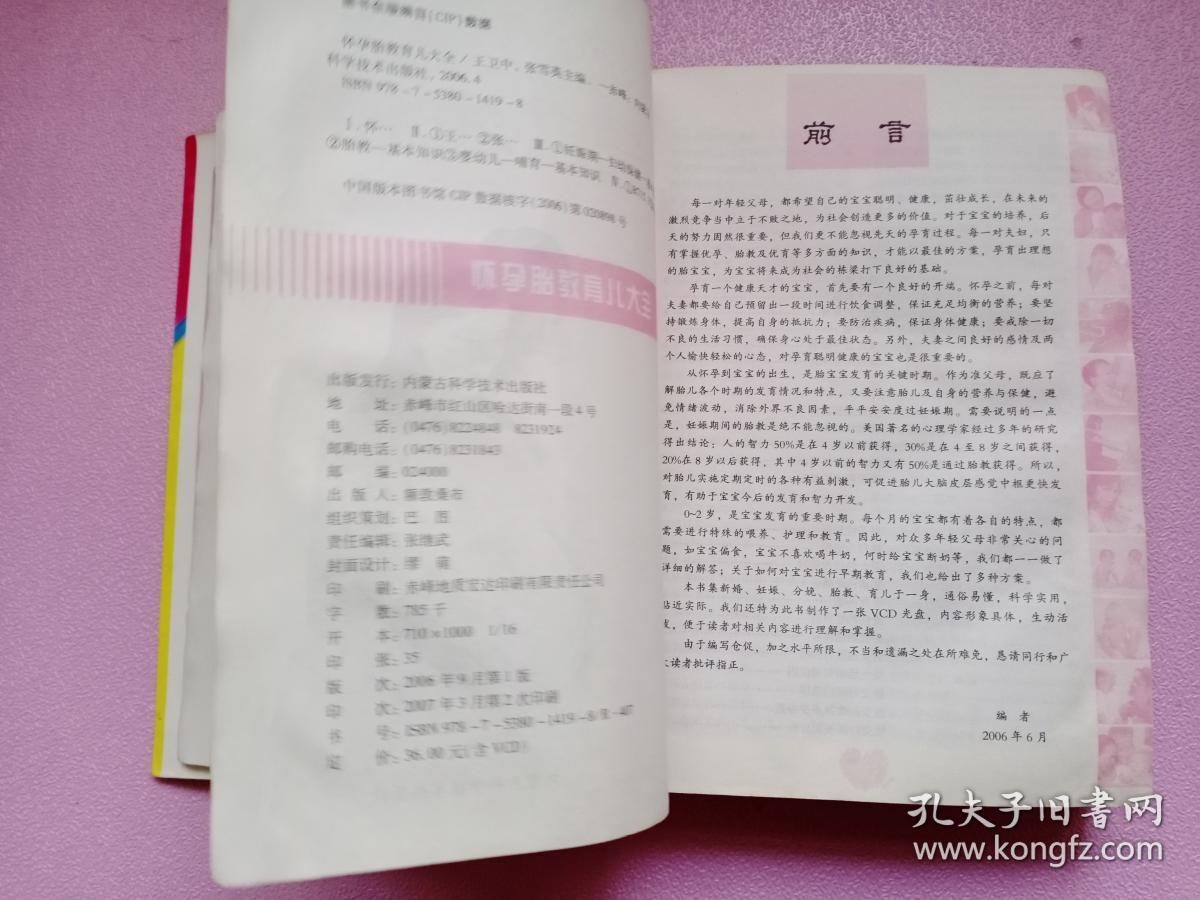 图书在版编目(CIP)数据
怀孕胎教育儿大全/王卫中,张雪英主编.—赤峰:
科学技术出版社,2006.4
ISBN 978-7-5380-1419-8
Ⅰ.怀… Ⅱ.①王… ②张… Ⅲ.①妊娠期—妇幼保健—
②胎教—基本知识③婴幼儿—哺育—基本知识 Ⅳ.
中国版本图书馆CIP数据核字(2006)第020898号
怀孕胎教育儿大全
出版发行:内蒙古科学技术出版社
地 址:赤峰市红山区哈达街南一段4号
电 话:(0476)8224848 8231924
邮购电话:(0476)8231843
邮 编:024000
出 版 人:额敦桑布
组织策划:巴 图
责任编辑:张继武
封面设计:
印 刷:赤峰地质宏达印刷有限责任公司
字 数:785千
开 本:710×1000 1/16
印 张:35
版 次:2006年9月第1版
印 次:2007年3月第2次印刷
书 号:ISBN 978-7-5380-1419-8/R·407
定 价:36.00元(含VCD)
前 言
每一对年轻父母,都希望自己的宝宝聪明、健康,茁壮成长,在未来的
激烈竞争当中立于不败之地,为社会创造更多的价值。对于宝宝的培养,后
天的努力固然很重要,但我们更不能忽视先天的孕育过程。每一对夫妇,只
有掌握优孕、胎教及优育等多方面的知识,才能以最佳的方案,孕育出理想
的胎宝宝,为宝宝将来成为社会的栋梁打下良好的基础。
孕育一个健康天才的宝宝,首先要有一个良好的开端。怀孕之前,每对
夫妻都要给自己预留出一段时间进行饮食调整,保证充足均衡的营养;要坚
持锻炼身体,提高自身的抵抗力;要防治疾病,保证身体健康;要戒除一切
不良的生活习惯,确保身心处于最佳状态。另外,夫妻之间良好的感情及两
个人愉快轻松的心态,对孕育聪明健康的宝宝也是很重要的。
从怀孕到宝宝的出生,是胎宝宝发育的关键时期。作为准父母,既应了
解胎儿各个时期的发育情况和特点,又要注意胎儿及自身的营养与保健,避
免情绪波动,消除外界不良因素,平平安安度过妊娠期。需要说明的一点
是,妊娠期间的胎教是绝不能忽视的。美国著名的心理学家经过多年的研究
得出结论:人的智力50%是在4岁以前获得,30%是在4至8岁之间获得,
20%在8岁以后获得,其中4岁以前的智力又有50%是通过胎教获得。所以,
对胎儿实施定期定时的各种有益刺激,可促进胎儿大脑皮层感觉中枢更快发
育,有助于宝宝今后的发育和智力开发。
0~2岁,是宝宝发育的重要时期。每个月的宝宝都有着各自的特点,都
需要进行特殊的喂养、护理和教育。因此,对众多年轻父母非常关心的问
题,如宝宝偏食,宝宝不喜欢喝牛奶,何时给宝宝断奶等,我们都一一做了
详细的解答;关于如何对宝宝进行早期教育,我们也给出了多种方案。
本书集新婚、妊娠、分娩、胎教、育儿于一身,通俗易懂,科学实用,
贴近实际。我们还特为此书制作了一张VCD光盘,内容形象具体,生动活
泼,便于读者对相关内容进行理解和掌握。
由于编写仓促,加之水平所限,不当和遗漏之处在所难免,恳请同行和广
大读者批评指正。
编 者
2006年6月
孔夫子旧书网
www.kongfz.com